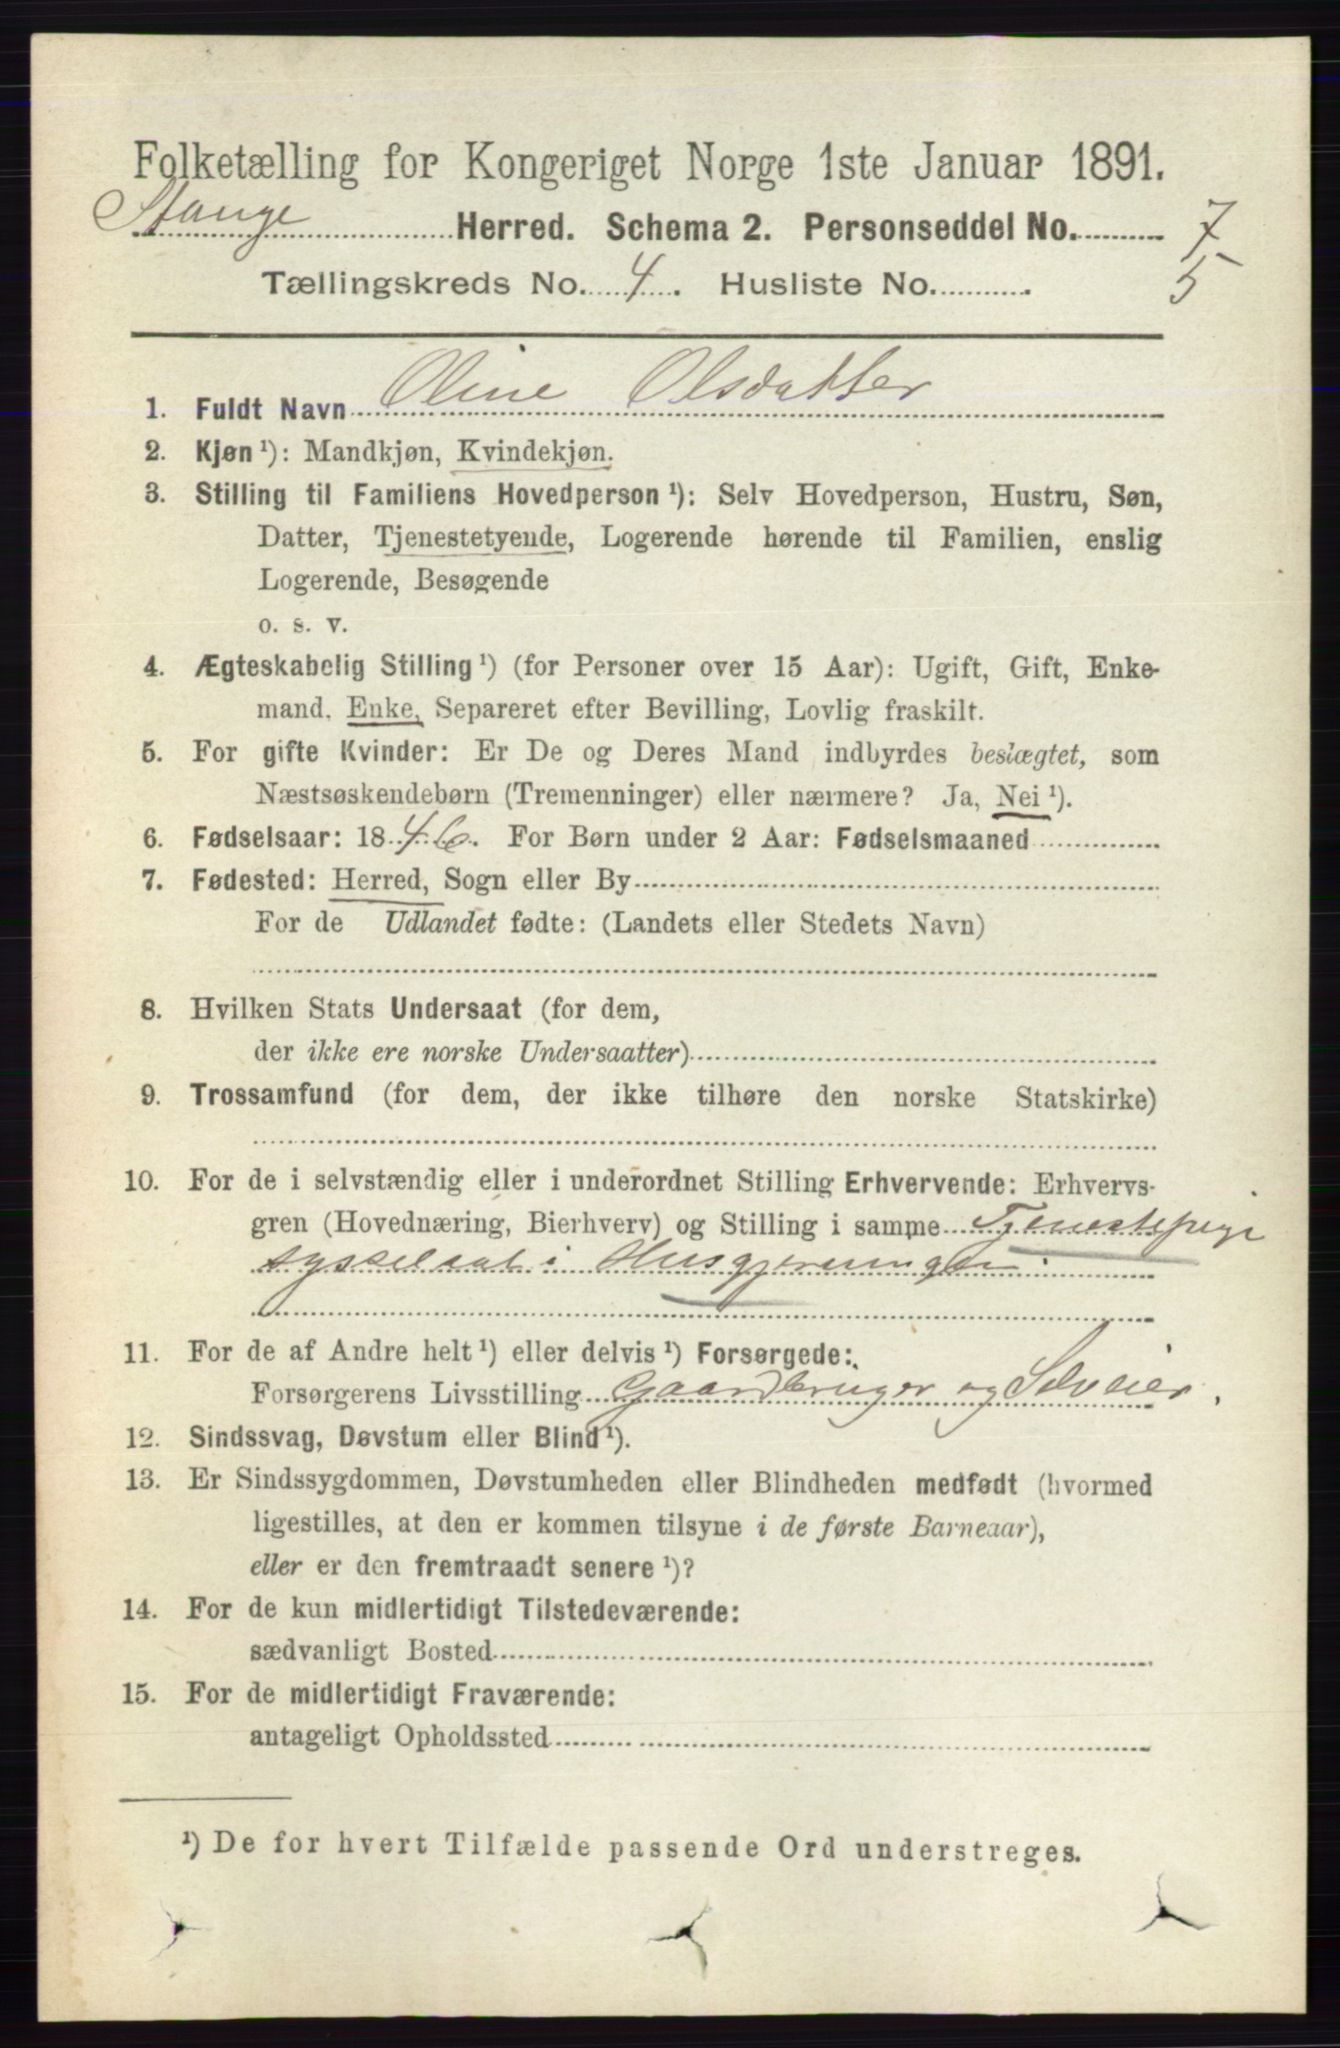 Folketælling for Kongeriget Norge 1ste Januar 1891.
Stange Herred. Schema 2. Personseddel No. 7
Tællingskreds No. 4. Husliste No. 5
1. Fuldt Navn Oline Olsdatter
2. Kjøn ¹): Mandkjøn, Kvindekjøn.
3. Stilling til Familiens Hovedperson ¹): Selv Hovedperson, Hustru, Søn,
Datter, Tjenestetyende, Logerende hørende til Familien, enslig
Logerende, Besøgende
o. s. v.
4. Ægteskabelig Stilling ¹) (for Personer over 15 Aar): Ugift, Gift, Enke-
mand, Enke, Separeret efter Bevilling, Lovlig fraskilt.
5. For gifte Kvinder: Er De og Deres Mand indbyrdes beslægtet, som
Næstsøskendebørn (Tremenninger) eller nærmere? Ja, Nei ¹).
6. Fødselsaar: 1846. For Børn under 2 Aar: Fødselsmaaned
7. Fødested: Herred, Sogn eller By
For de Udlandet fødte: (Landets eller Stedets Navn)
8. Hvilken Stats Undersaat (for dem,
der ikke ere norske Undersaatter)
9. Trossamfund (for dem, der ikke tilhøre den norske Statskirke)
10. For de i selvstændig eller i underordnet Stilling Erhvervende: Erhvervs-
gren (Hovednæring, Bierhverv) og Stilling i samme Tjenestepige
sysselsat i Husgjerningen.
11. For de af Andre helt ¹) eller delvis ¹) Forsørgede:
Forsørgerens Livsstilling Gaardbruger og Selveier.
12. Sindssvag, Døvstum eller Blind ¹).
13. Er Sindssygdommen, Døvstumheden eller Blindheden medfødt (hvormed
ligestilles, at den er kommen tilsyne i de første Barneaar),
eller er den fremtraadt senere ¹)?
14. For de kun midlertidigt Tilstedeværende:
sædvanligt Bosted
15. For de midlertidigt Fraværende:
antageligt Opholdssted
¹) De for hvert Tilfælde passende Ord understreges.